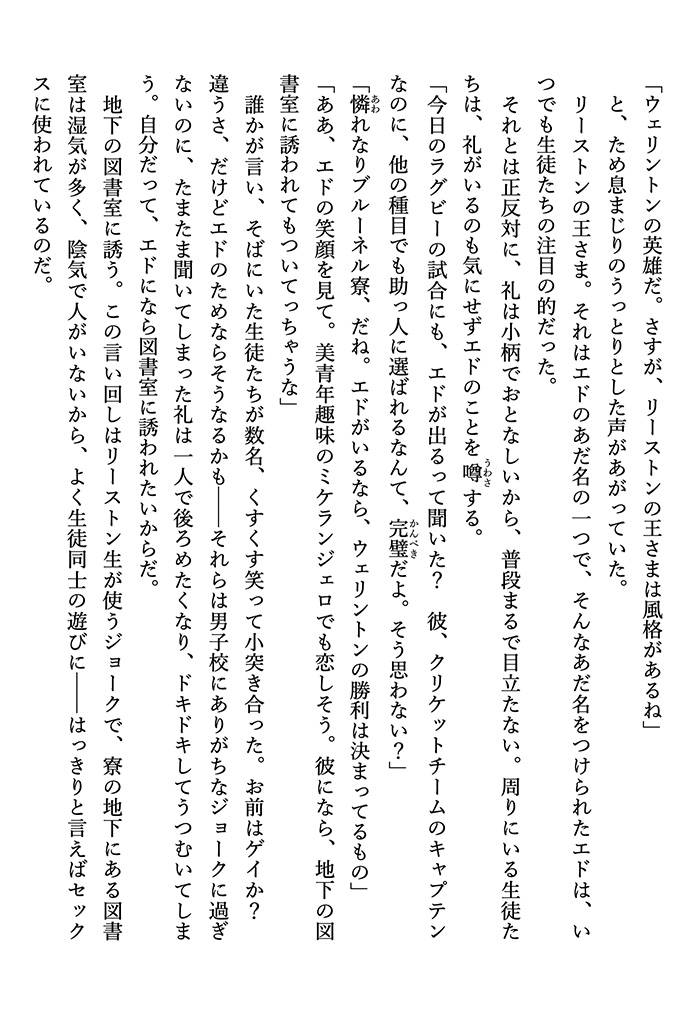 「ウェリントンの英雄だ。さすが、リーストンの王さまは風格があるね」
と、ため息まじりのうっとりとした声があがっていた。
リーストンの王さま。それはエドのあだ名の一つで、そんなあだ名をつけられたエドは、い
つでも生徒たちの注目の的だった。
それとは正反対に、礼は小柄でおとなしいから、普段まるで目立たない。周りにいる生徒た
ちは、礼がいるのも気にせずエドのことを噂うわさする。
「今日のラグビーの試合にも、エドが出るって聞いた？　彼、クリケットチームのキャプテン
なのに、他の種目でも助っ人に選ばれるなんて、完璧かんぺきだよ。そう思わない？」
「憐あわれなりブルーネル寮、だね。エドがいるなら、ウェリントンの勝利は決まってるもの」
「ああ、エドの笑顔を見て。美青年趣味のミケランジェロでも恋しそう。彼になら、地下の図
書室に誘われてもついてっちゃうな」
誰かが言い、そばにいた生徒たちが数名、くすくす笑って小突き合った。お前はゲイか？
違うさ、だけどエドのためならそうなるかも――それらは男子校にありがちなジョークに過ぎ
ないのに、たまたま聞いてしまった礼は一人で後ろめたくなり、ドキドキしてうつむいてしま
う。自分だって、エドになら図書室に誘われたいからだ。
地下の図書室に誘う。この言い回しはリーストン生が使うジョークで、寮の地下にある図書
室は湿気が多く、陰気で人がいないから、よく生徒同士の遊びに――はっきりと言えばセック
スに使われているのだ。